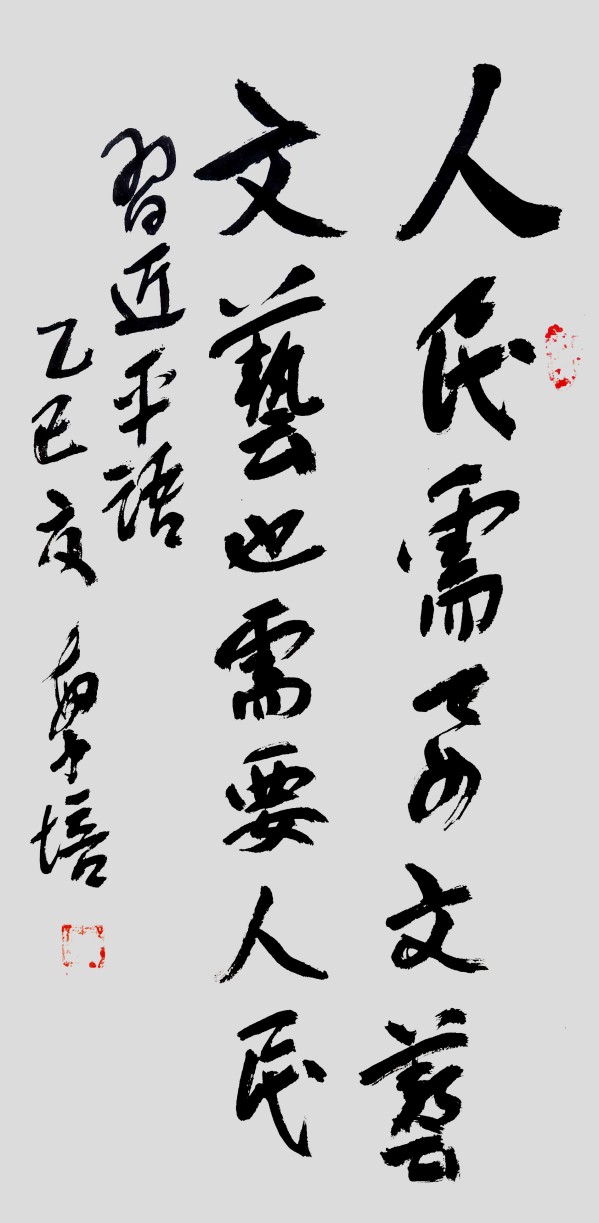 人民需要文藝
文藝也需要人民
習近平語
乙巳夏
培